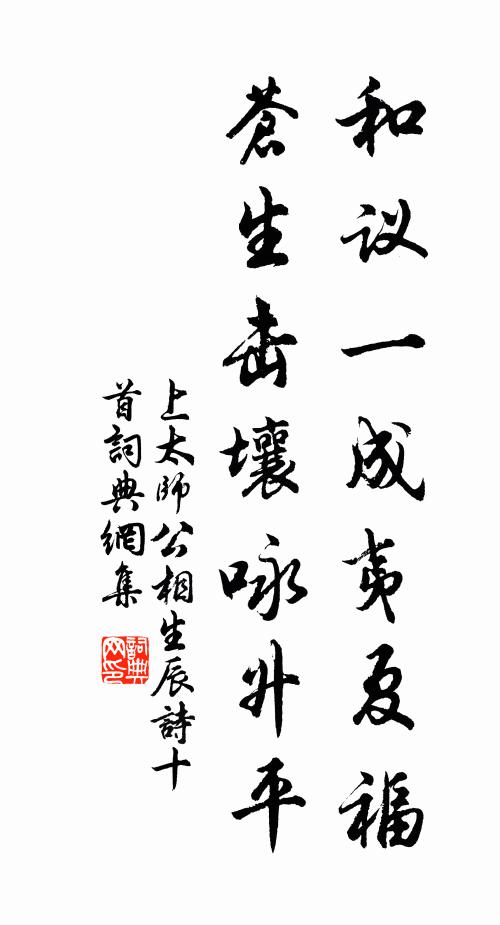 和议一成夷夏福
蒼生击壤咏升平
上太師公相生辰詩十
首詞典網集
詞典网印